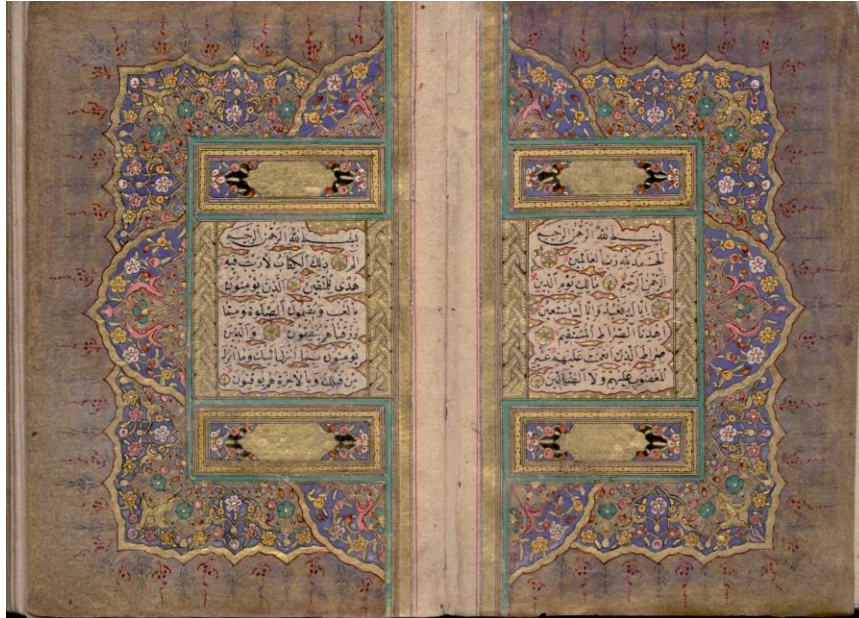 بسم الله الرحمن الرحيم
الحمد لله رب العالمين
الرحمن الرحيم مالك يوم الدين
اياك نعبد واياك نستعين
اهدنا الصراط المستقيم
صراط الذين انعمت عليهم غير
المغضوب عليهم ولا الضالين
بسم الله الرحمن الرحيم
الم ذلك الكتاب لا ريب فيه
هدى للمتقين الذين يؤمنون
بالغيب ويقيمون الصلوة ومما
رزقناهم ينفقون والذين
يؤمنون بما انزل اليك وما انزل
من قبلك وبالاخرة هم يوقنون